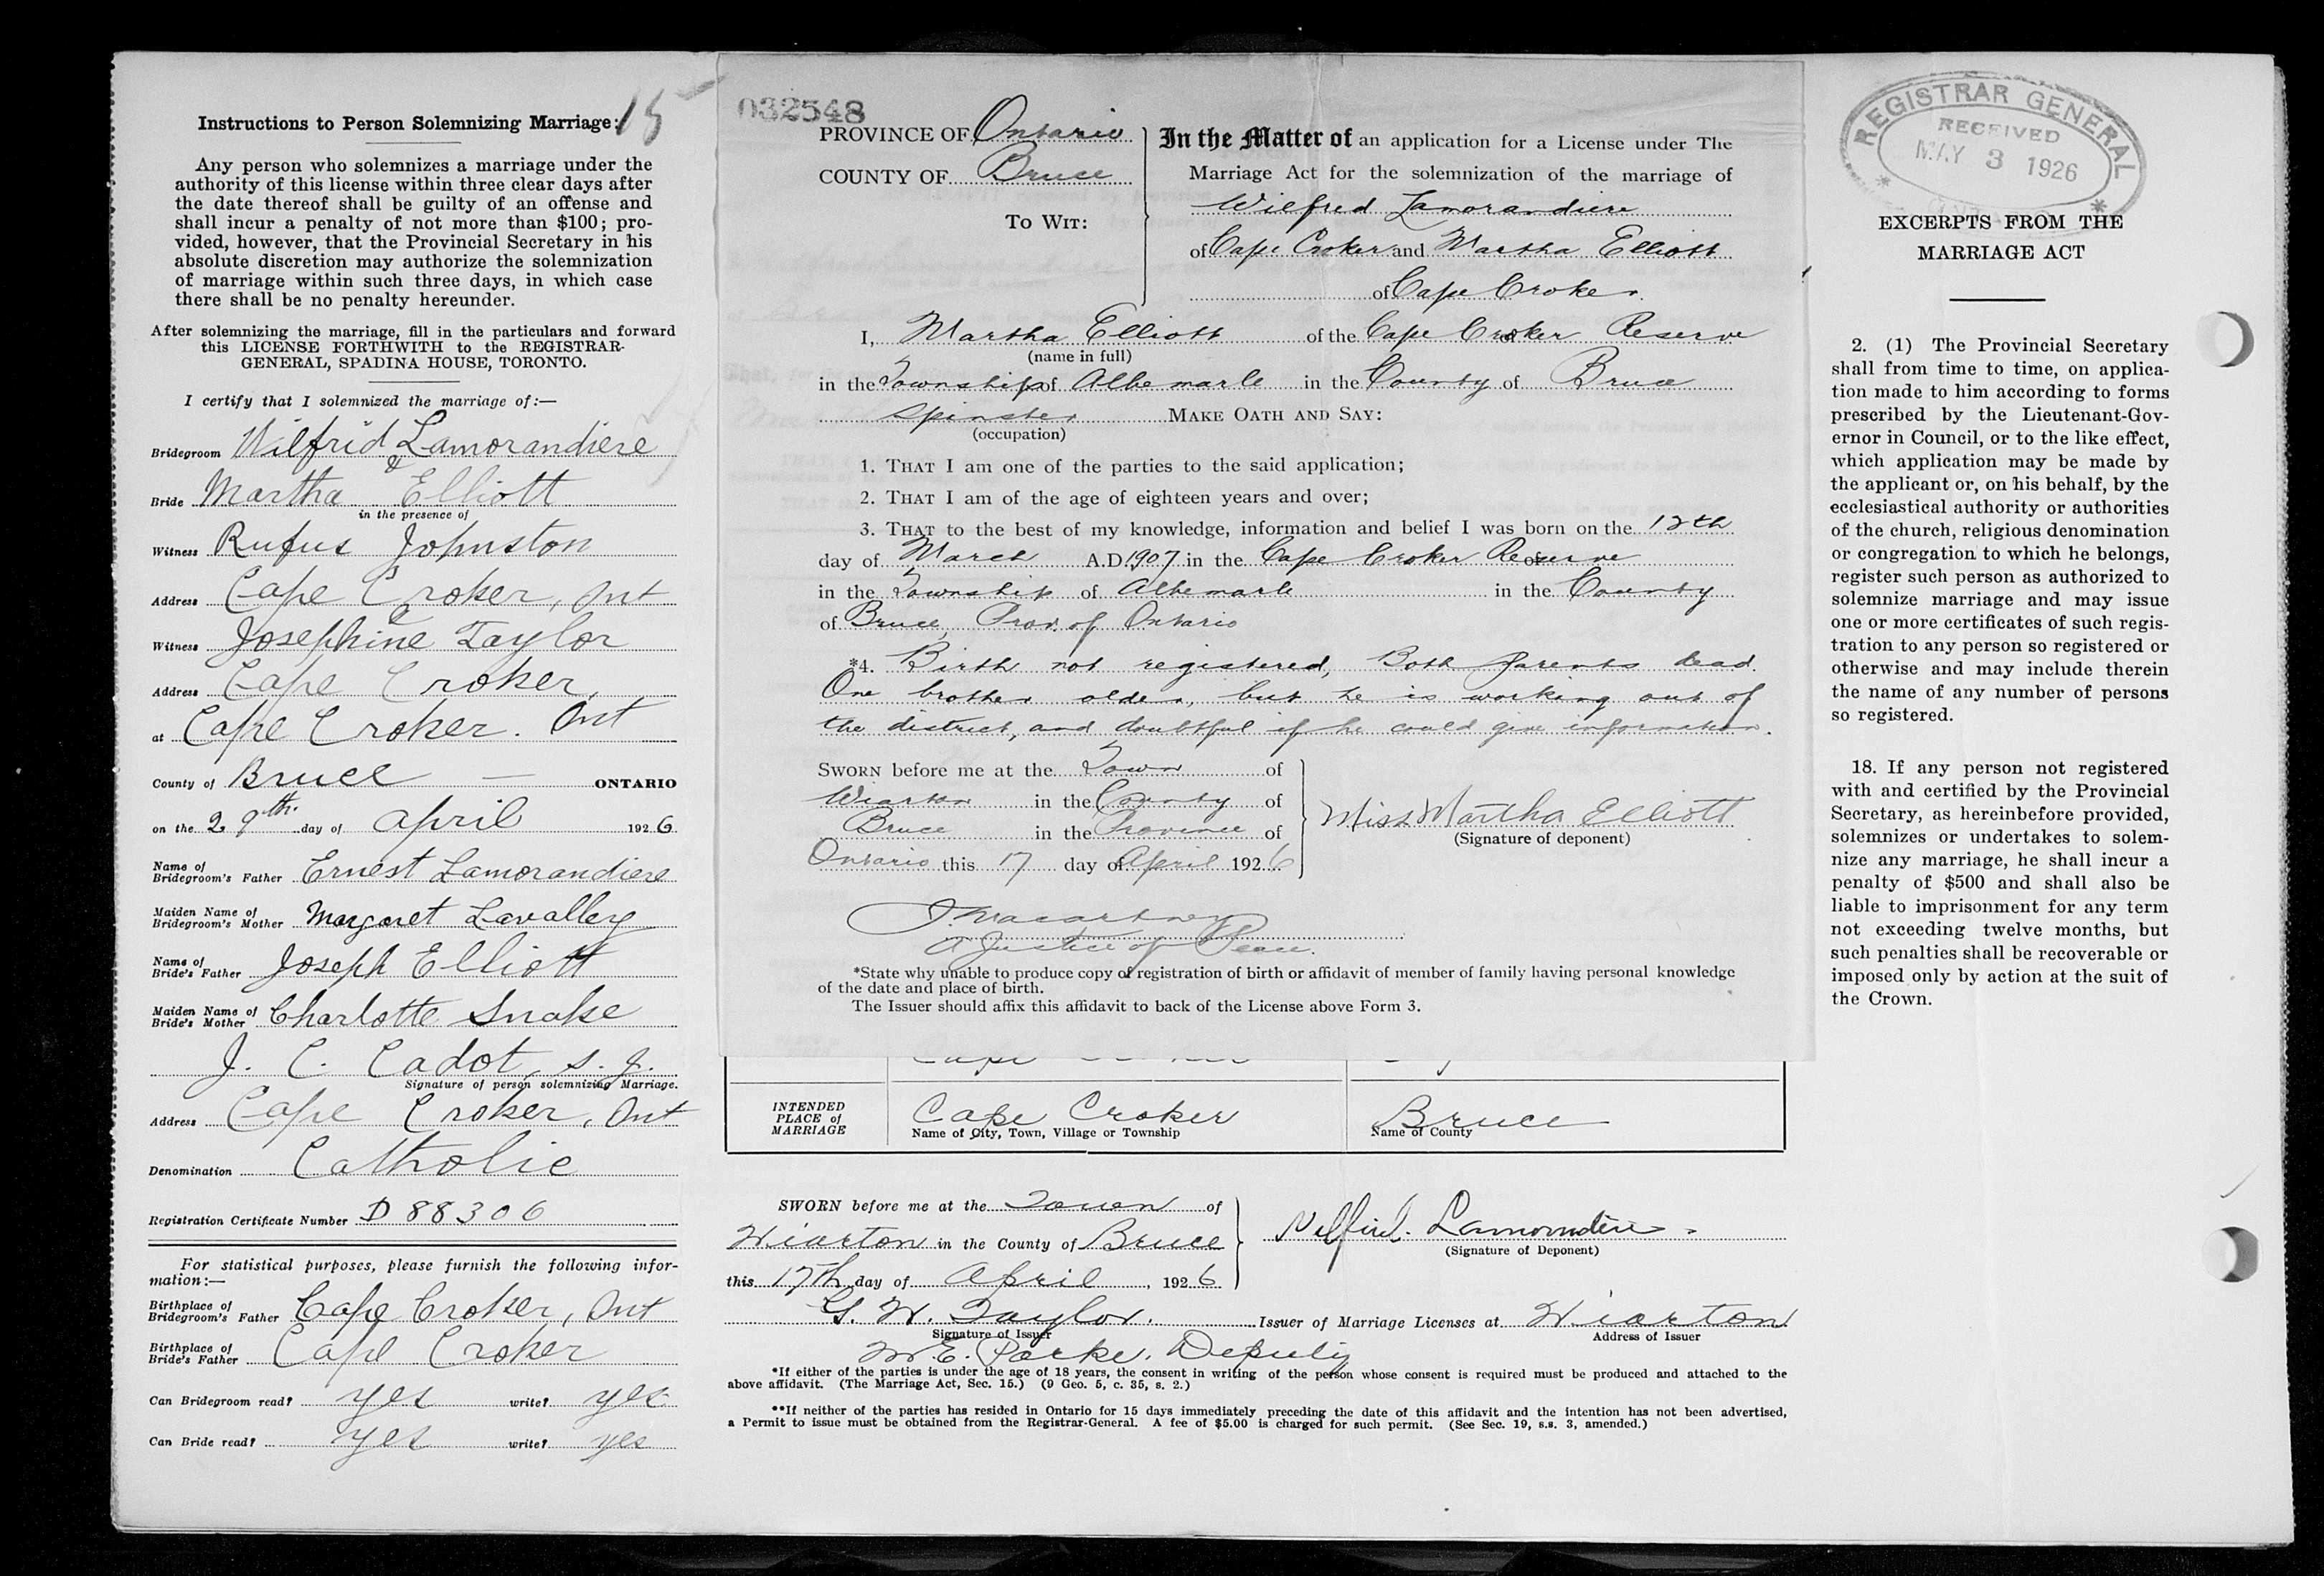 Instructions to Person Solemnizing Marriage:
15
Any person who solemnizes a marriage under the
authority of this license within three clear days after
the date thereof shall be guilty of an offense and
shall incur a penalty of not more than $100; pro-
vided, however, that the Provincial Secretary in his
absolute discretion may authorize the solemnization
of marriage within such three days, in which case
there shall be no penalty hereunder.
After solemnizing the marriage, fill in the particulars and forward
this LICENSE FORTHWITH to the REGISTRAR-
GENERAL, SPADINA HOUSE, TORONTO.
I certify that I solemnized the marriage of:—
Bridegroom Wilfrid Lamorandiere
&
Bride Martha Elliott
in the presence of
Witness Rufus Johnston
Address Cape Croker, Ont
&
Witness Josephine Taylor
Address Cape Croker,
at Cape Croker. Ont
County of Bruce — ONTARIO
on the 29th. day of April 1926
Name of
Bridegroom's Father Ernest Lamorandiere
Maiden Name of
Bridegroom's Mother Margaret Lavalley
Name of
Bride's Father Joseph Elliott
Maiden Name of
Bride's Mother Charlotte Snake
J. C. Cadot, s. j.
Signature of person solemnizing Marriage.
Address Cape Croker, Ont
Denomination Catholic
Registration Certificate Number D 88306
For statistical purposes, please furnish the following infor-
mation:—
Birthplace of
Bridegroom's Father Cape Croker, Ont
Birthplace of
Bride's Father Cape Croker
Can Bridegroom read? yes write? yes
Can Bride read? yes write? yes
032548
PROVINCE OF Ontario
COUNTY OF Bruce
TO WIT:
In the Matter of an application for a License under The
Marriage Act for the solemnization of the marriage of
Wilfred Lamorandiere
of Cape Croker and Martha Elliott
of Cape Croker.
I, Martha Elliott of the Cape Croker Reserve
(name in full)
in the Township of Albemarle in the County of Bruce
Spinster MAKE OATH AND SAY:
(occupation)
1. THAT I am one of the parties to the said application;
2. THAT I am of the age of eighteen years and over;
3. THAT to the best of my knowledge, information and belief I was born on the 12th
day of March A.D. 1907 in the Cape Croker Reserve of
in the Township of Albemarle in the County
of Bruce, Prov. of Ontario
*4. Birth not registered, Both parents dead.
One brother older, but he is working out of
the district, and doubtful if he could give information.
SWORN before me at the Town of
Wiarton in the County of
Bruce in the Province of
Ontario this 17 day of April 1926
Miss Martha Elliott
(Signature of deponent)
J. Macartney
A Justice of Peace.
*State why unable to produce copy of registration of birth or affidavit of member of family having personal knowledge
of the date and place of birth.
The Issuer should affix this affidavit to back of the License above Form 3.
INTENDED
PLACE of
MARRIAGE
Cape Croker
Name of City, Town, Village or Township
Bruce
Name of County
SWORN before me at the Town of
Wiarton in the County of Bruce
this 17th day of April, 1926
Wilfird. Lamorndiere
(Signature of Deponent)
G. W. Taylor. Issuer of Marriage Licenses at Wiarton
Signature of Issuer Address of Issuer
M. E. Parke. Deputy
*If either of the parties is under the age of 18 years, the consent in writing of the person whose consent is required must be produced and attached to the
above affidavit. (The Marriage Act, Sec. 15.) (9 Geo. 5, c. 35, s. 2.)
**If neither of the parties has resided in Ontario for 15 days immediately preceding the date of this affidavit and the intention has not been advertised,
a Permit to issue must be obtained from the Registrar-General. A fee of $5.00 is charged for such permit. (See Sec. 19, s.s. 3, amended.)
REGISTRAR GENERAL
RECEIVED
MAY 3 1926
EXCERPTS FROM THE
MARRIAGE ACT
2. (1) The Provincial Secretary
shall from time to time, on applica-
tion made to him according to forms
prescribed by the Lieutenant-Gov-
ernor in Council, or to the like effect,
which application may be made by
the applicant or, on his behalf, by the
ecclesiastical authority or authorities
of the church, religious denomination
or congregation to which he belongs,
register such person as authorized to
solemnize marriage and may issue
one or more certificates of such regis-
tration to any person so registered or
otherwise and may include therein
the name of any number of persons
so registered.
18. If any person not registered
with and certified by the Provincial
Secretary, as hereinbefore provided,
solemnizes or undertakes to solem-
nize any marriage, he shall incur a
penalty of $500 and shall also be
liable to imprisonment for any term
not exceeding twelve months, but
such penalties shall be recoverable or
imposed only by action at the suit of
the Crown.